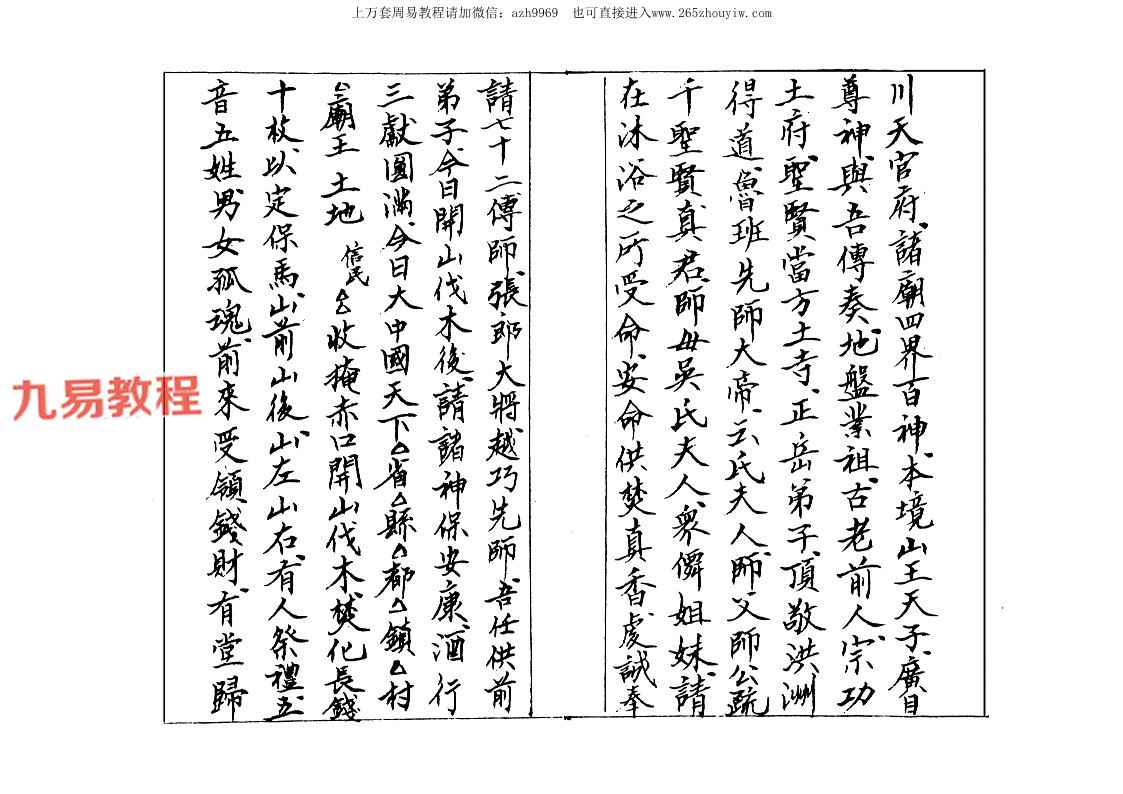 上万套周易教程请加微信：azh9969　也可直接进入www.265zhouyiw.com
川天官府、諸廟四界百神、本境山王天子、廣目
尊神、與吾傳奏、地盤業祖、古老前人、宗功
土府、聖賢當方土寺、正岳弟子、頂敬洪洲
得道、魯班先師大帝、云氏夫人、師父師公、䟽
千聖賢真君、師母吳氏夫人、眾僊姐妹、請
在沐浴之所受命、安命供焚真香、虔誠奉
請七十二傳師、張郎大將越巧先師、吾任供前
弟子、今日開山伐木後、請諸神保安康、酒行
三獻圓滿、今日大中國天下△省△縣△都△鎮△村
△廟王 土地 信民 △收掩赤口開山伐木、焚化長錢
十枚、以定保馬、山前山後、山左山右、有人祭禮、五
音五姓男女孤魂、前來受領錢財、有堂歸
九易教程